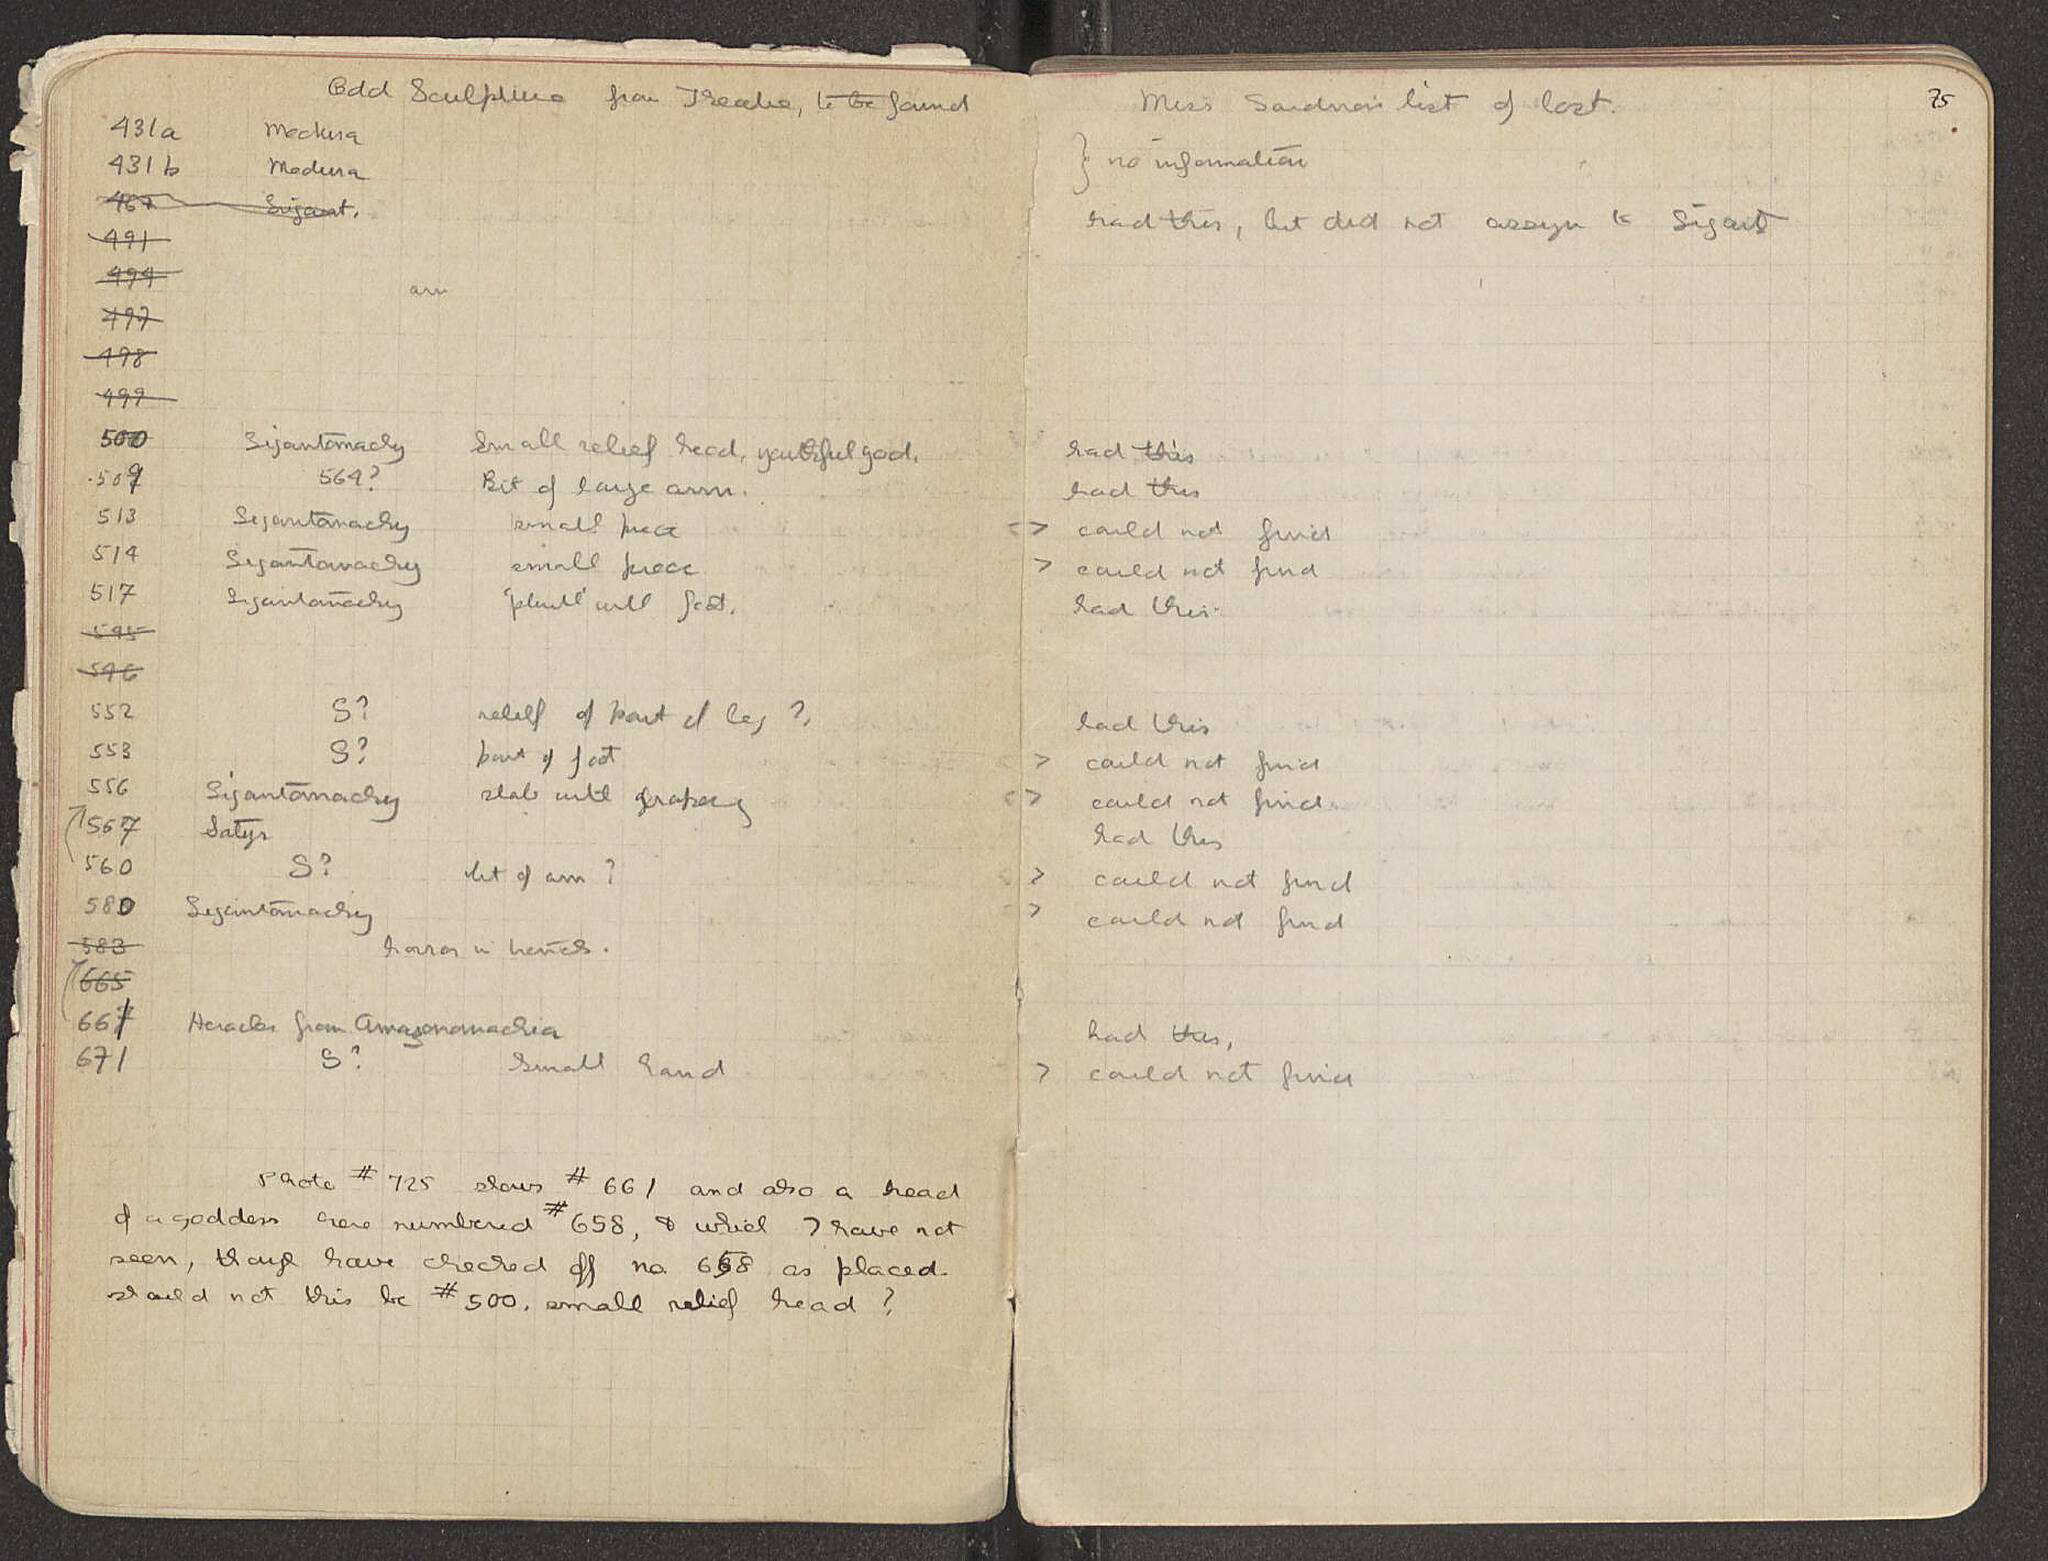 Odd Sculpture from Theatre, to be found
431a Medusa
431b Medusa
467 Gigant.
491
494
arm
497
498
499
500 Gigantomachy Small relief head, youthful god.
509 564? Bit of large arm.
513 Gigantomachy small piece
514 Gigantomachy small piece
517 Gigantomachy plinth with foot.
545
546
552 G? relief of part of leg?
553 G? part of foot
556 Gigantomachy slab with drapery
567 Satyr
560 G? bit of arm?
580 Gigantomachy
583 horror in hands.
665
661 Heracles from Amazonomachia
671 G? Small hand
Photo # 725 shows # 661 and also a head
of a goddess here numbered # 658, & which I have not
seen, though have checked off no 658 as placed.
Should not this be # 500, small relief head?
75
Miss Gardner's list of lost.
} no information
had this, but did not assign to Gigant
had this
had this
> could not find
> could not find
had this.
had this
> could not find
> could not find
had this
> could not find
> could not find
had this,
> could not find